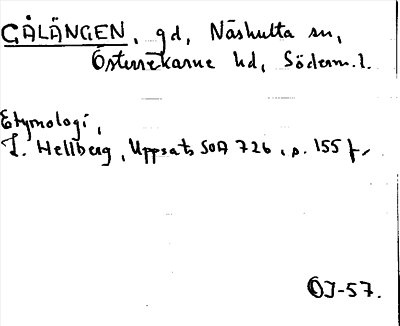 GÅLÄNGEN, gd, Näshulta sn,
Österrekarne hd, Söderm.l.
Etymologi,
L. Hellberg, Uppsats SOA 726, s. 155 f.
ÖJ-57.